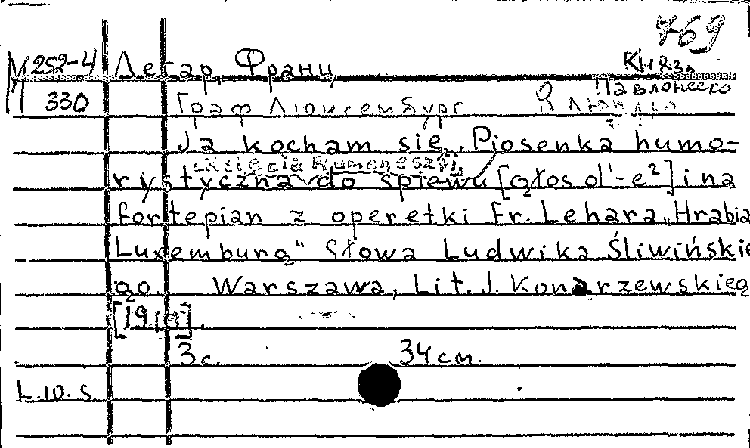 769
M 252-4 Легар, Франц
330 Граф Люксенбург Я люблю
Ja kocham się. Piosenka humo-
rystyczna do śpiewu [głos d¹-e²] i na
fortepian z operetki Fr. Lehara „Hrabia
Luxemburg" Słowa Ludwika Śliwińskie
go Warszawa, Lit. J. Konarzewskiego
[19
3 с. 34 см.